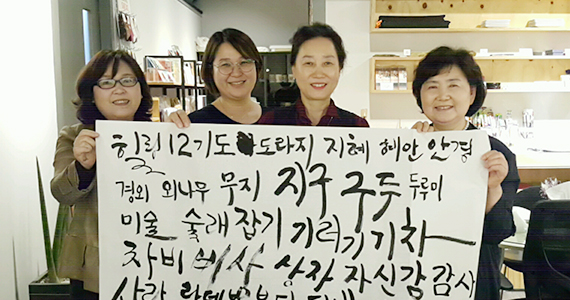 힐링12기도 도라지 지혜 혜안 안경
경외 외나무 무지 지구 구두 두루미
미술 술래잡기 기러기 기차
차비 비사 상자 자신감 감사
사랑